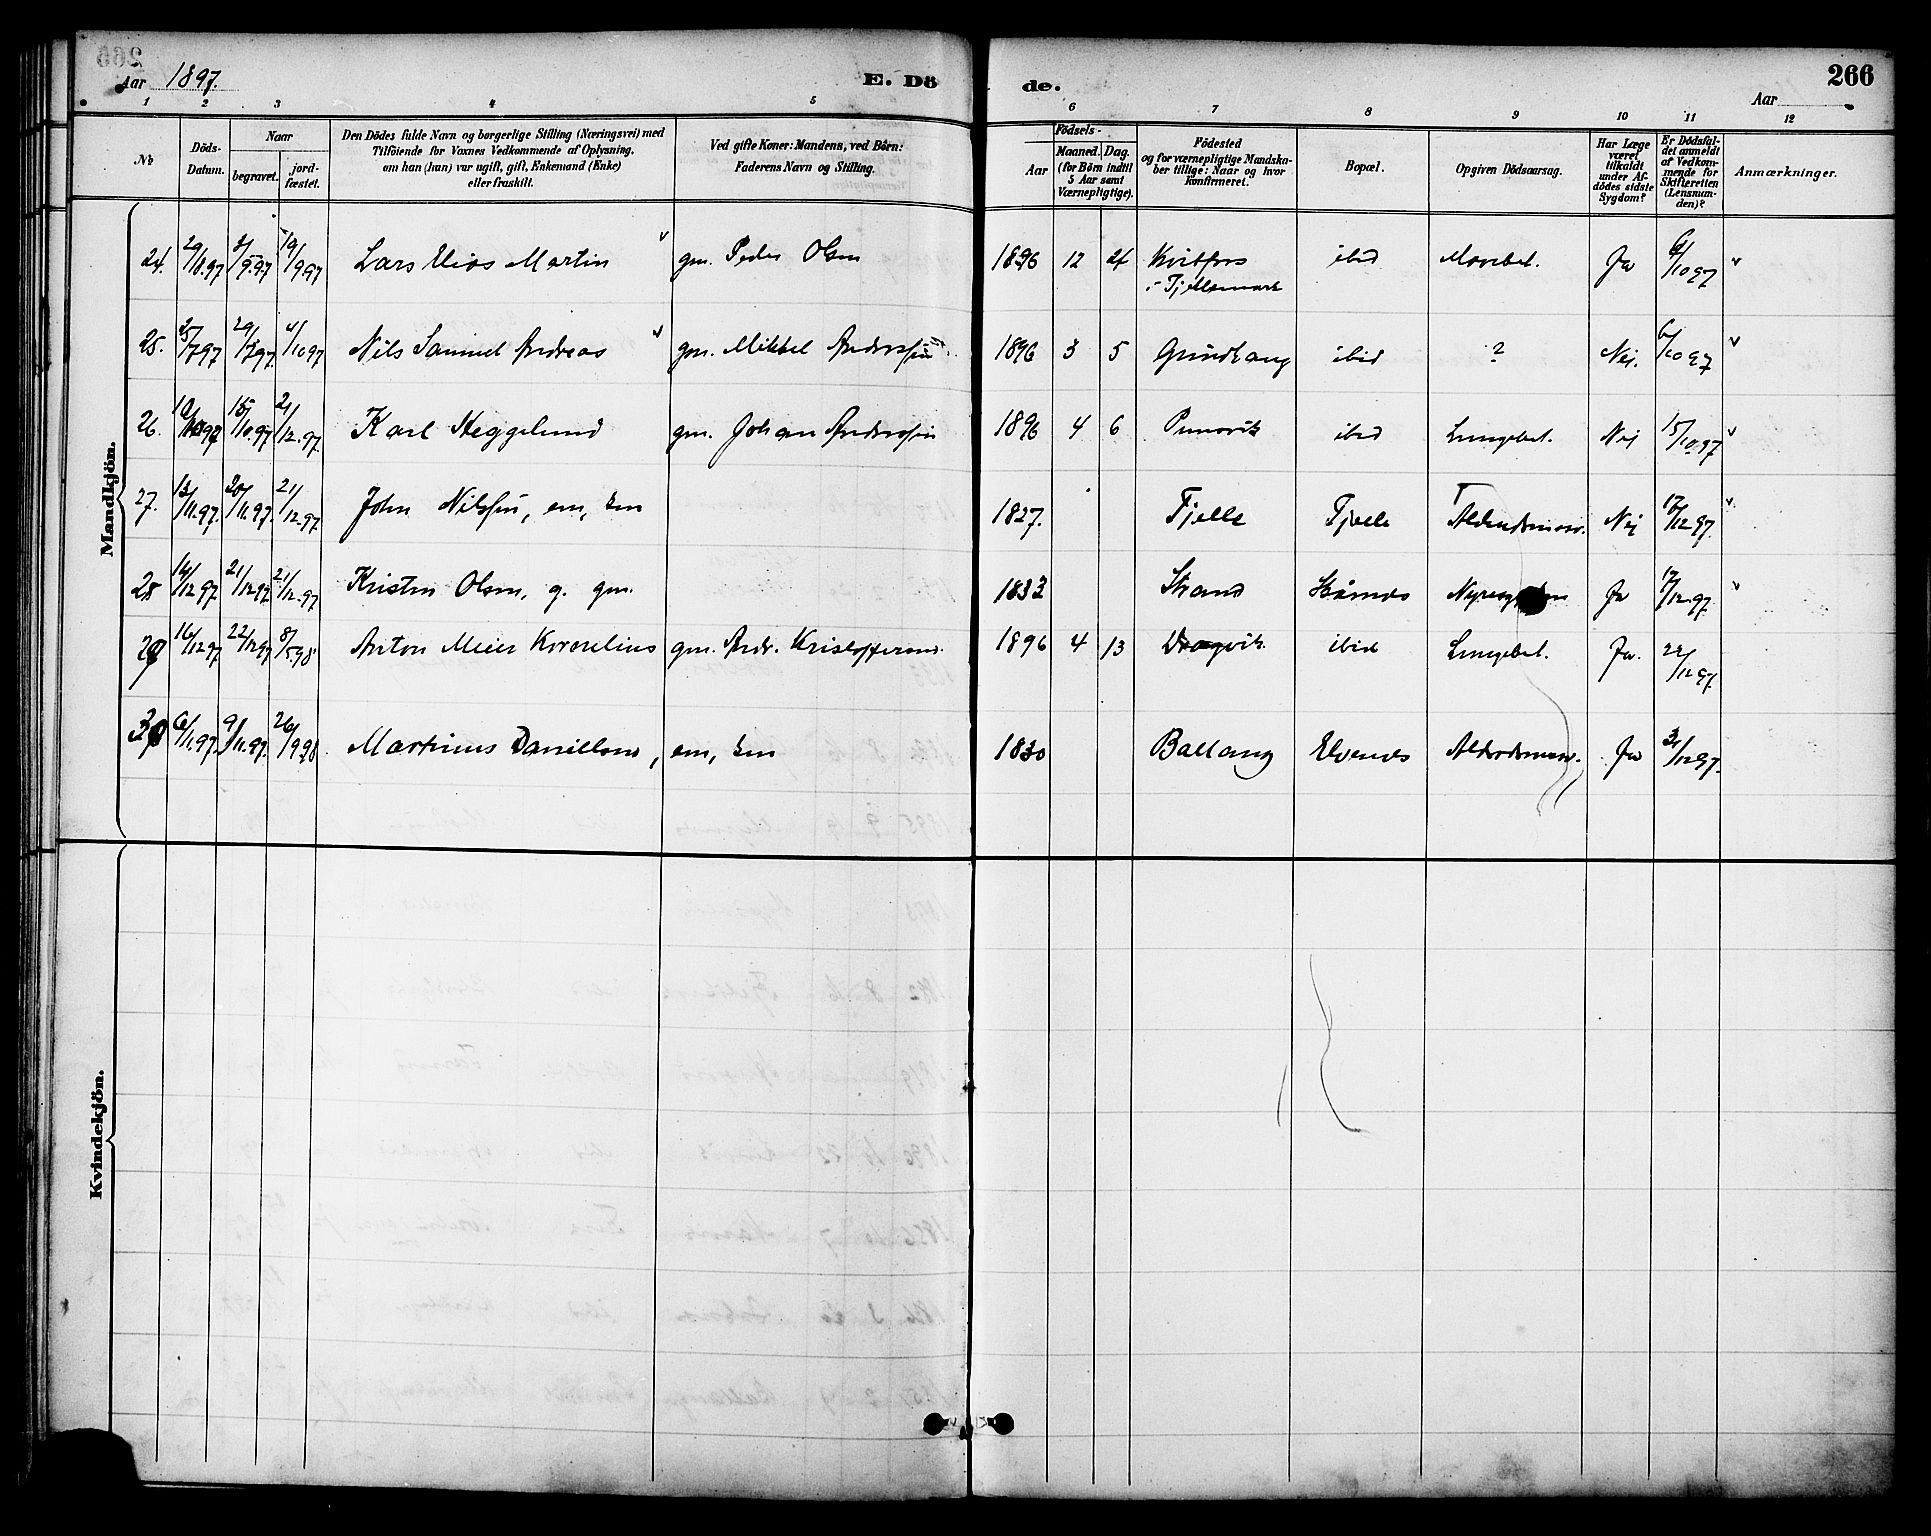 Aar 1897.
E. Döde.
266
Aar
1 2 3 4 5 6 7 8 9 10 11 12
No
Döds-Datum.
Naar
begravet.
jord-fæstet.
Den Dödes fulde Navn og borgerlige Stilling (Næringsvei) med
Tilföiende for Voxnes Vedkommende af Oplysning,
om han (hun) var ugift, gift, Enkemand (Enke)
eller fraskilt.
Ved gifte Koner: Mandens, ved Börn:
Faderens Navn og Stilling.
Födsels-
Aar
Maaned. Dag.
(for Börn indtil
5 Aar samt
Værnepligtige).
Födested
og for værnepligtige Mandska-
ber tillige: Naar og hvor
Konfirmeret.
Bopæl.
Opgiven Dödsaarsag.
Har Læge
været
tilkaldt
under Af-
dödes sidste
Sygdom?
Er Dödsfal-
det anmeldt
af Vedkom-
mende for
Skifteretten
(Lensman-
den)?
Anmærkninger.
Mandkjön.
24. 29/8.97 3/9.97 19/9 97 Lars Elias Martin gm. Peder Olsen 1896 12 24 Kvitfors ibid Mavebet. Ja 6/10 97
i Tjellemark
25. 25/7 97 29/7 97 4/10 97 Nils Samuel Andreas gm. Mikkel Anderssen 1896 3 5 Grundvang ibid ? Nei. 6/10 97
26. 15/10.97 21/12.97 Karl Heggelund gm. Johan Anderssen 1896 4 6 ibid Lungebet. Nei 15/10.97
27. 13/11.97. 20/11.97. 21/12.97 John Nilssen, em, 1827. Tjelle Tjelle Nei 17/12 97.
28 14/12 97 21/12 97 21/12.97 Kristen Olsen, g. gm. 1833 Strand Ja 17/12.97.
29 16/12 97 22/12 97 8/5 98 Anton Meier Kornelius gm. Andr. Kristoffersen. 1896 4 13 ibid Lungebet. Ja. 22/12 97.
30 6/11.97. 9/11.97. 26/9 98. Martinus Daniellsen, em, 1830 Ballang Elvenes Ja /12 97.
Kvindekjön.